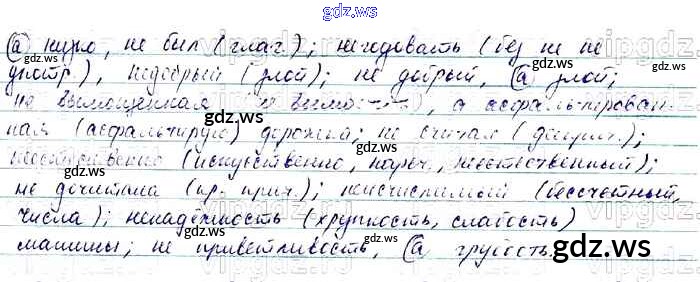 gdz.ws
gdz.ws
(а) низко, не был (глаг.); негодовать (без не не
употр.), недобрый (злой); не добрый, (а) злой;
не вымощенная, а асфальтирован-
ная (асфальтирую) дорожка; не считал (деепр.);
неестественно (искусственно, нареч., неестественный);
не дочитана (кр. прич.); неисчислимый (бессчетный,
числа); ненадёжность (хрупкость, слабость)
машины; не приветливость, (а) грубость.
gdz.ws
gdz.ws
gdz.ws